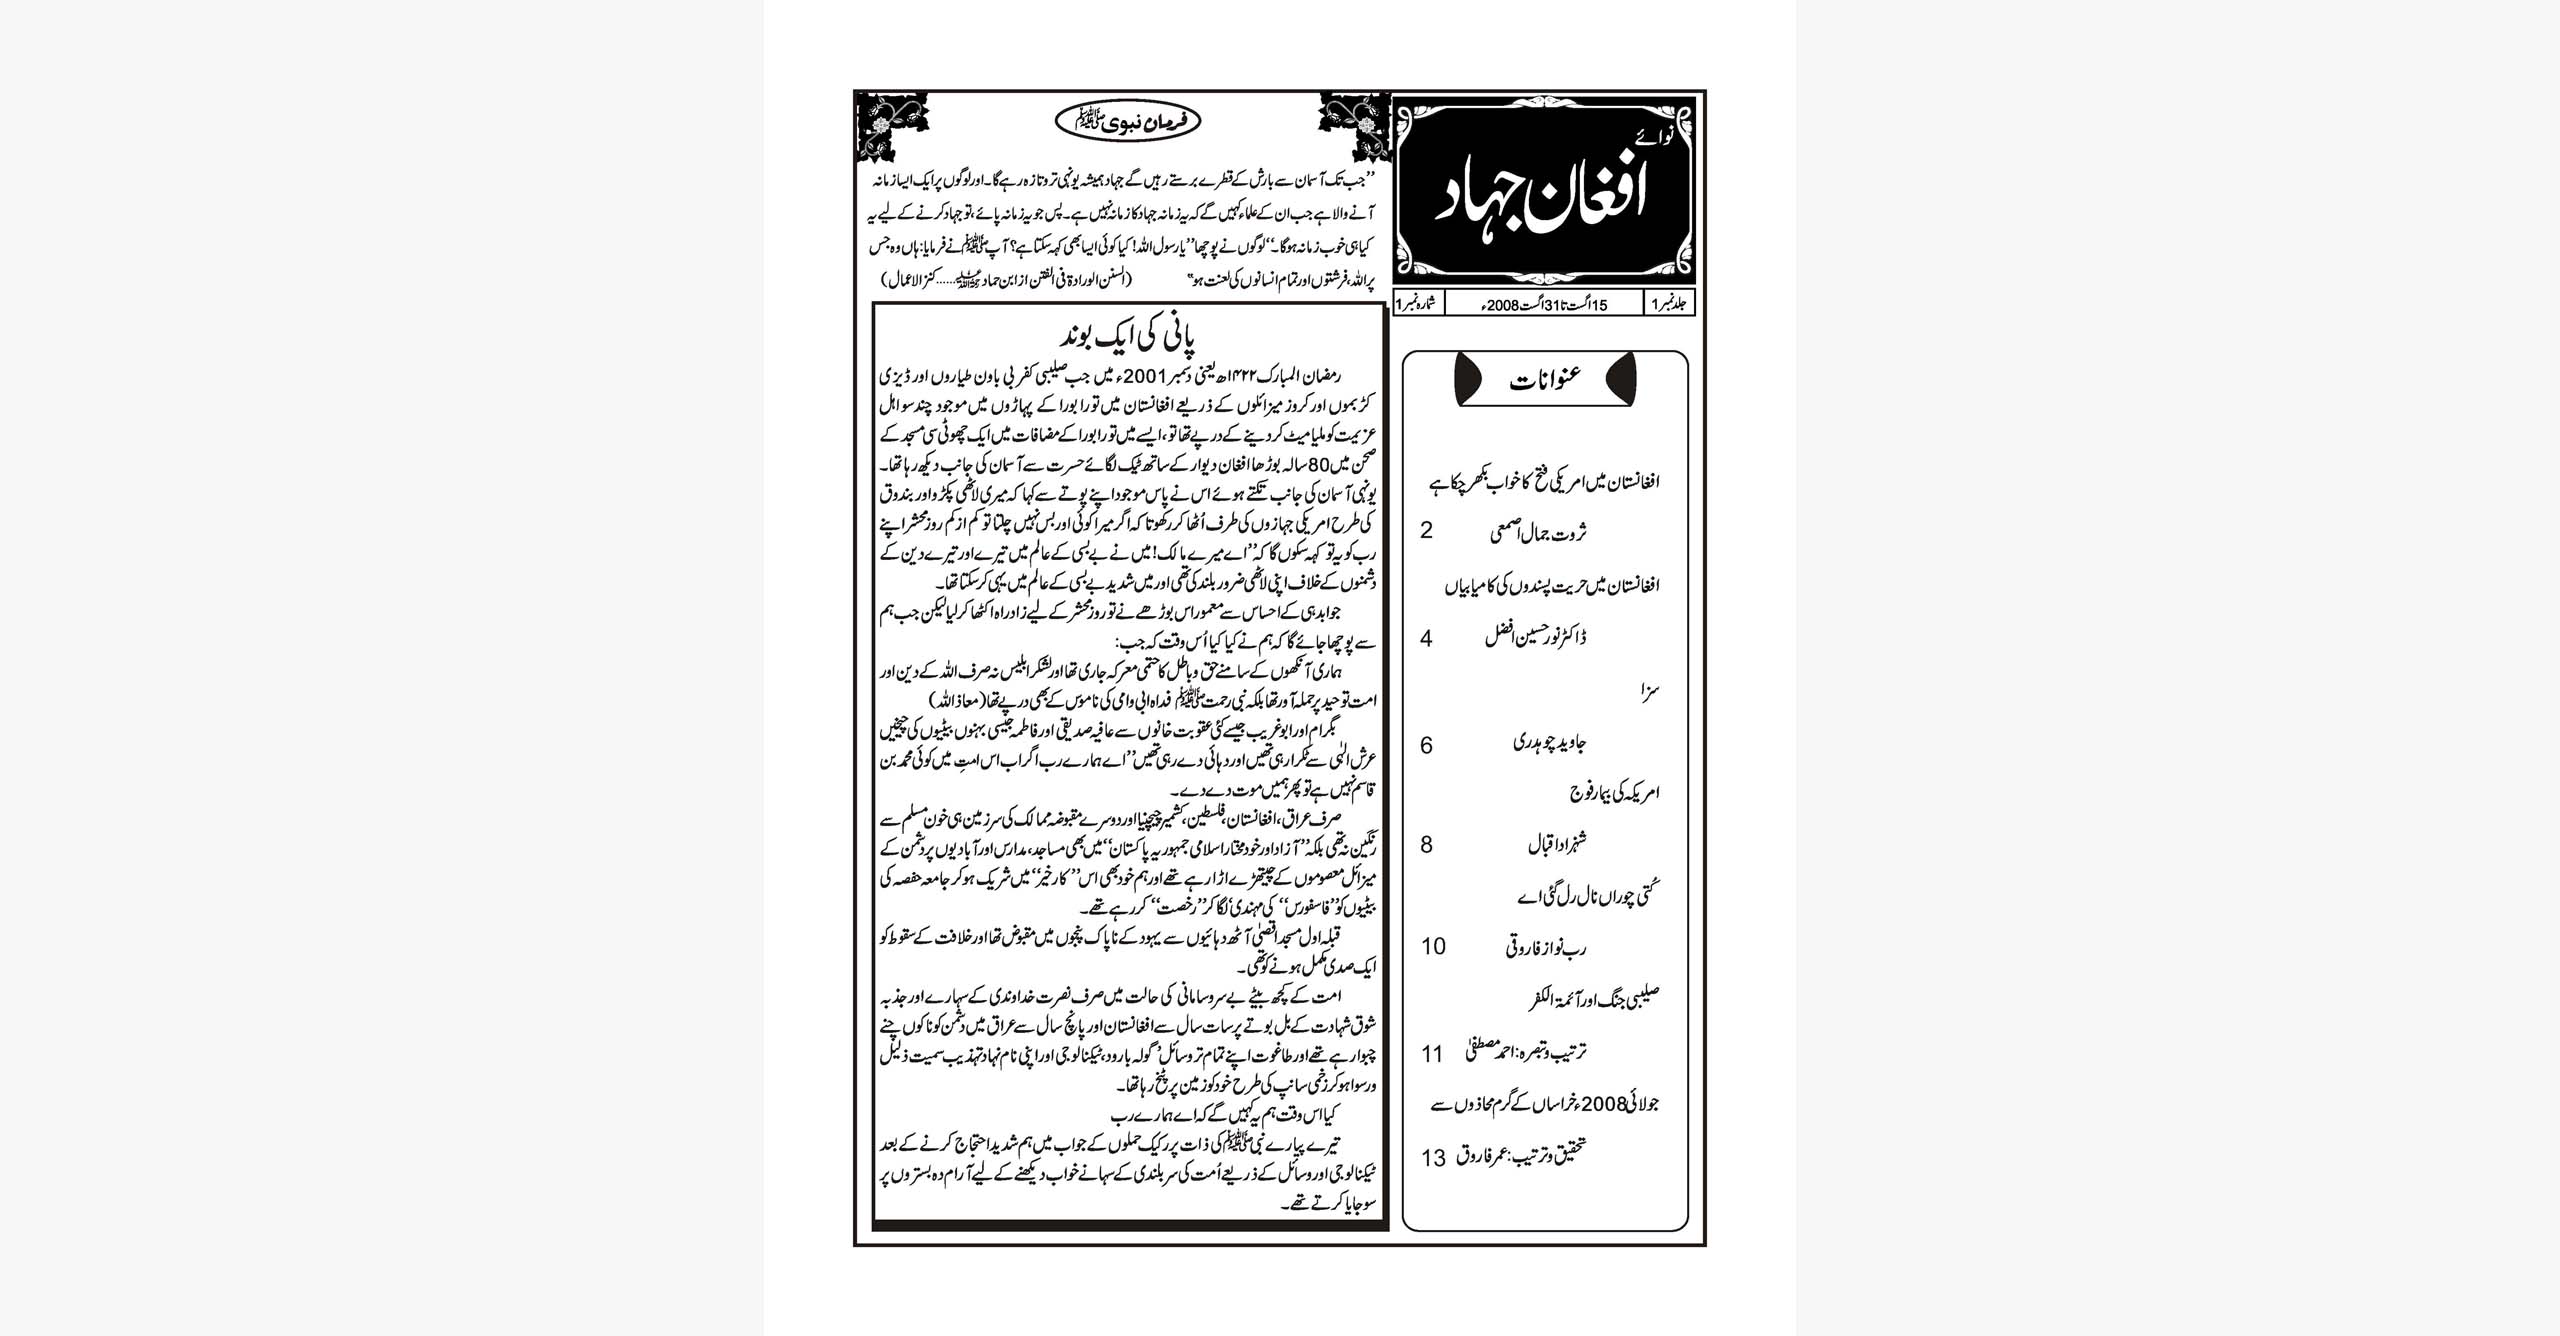 نوائے
افغان جہاد
جلد نمبر 1
15 اگست تا 31 اگست 2008ء
شمارہ نمبر 1
فرمان نبوی ﷺ
’’جب تک آسمان سے بارش کے قطرے برستے رہیں گے جہاد ہمیشہ یونہی تروتازہ رہے گا۔ اور لوگوں پر ایک ایسا زمانہ
آنے والا ہے جب ان کے علماء کہیں گے کہ یہ زمانہ جہاد کا زمانہ نہیں ہے۔ پس جو یہ زمانہ پائے، تو جہاد کرنے کے لیے یہ
کیا ہی خوب زمانہ ہوگا۔‘‘ لوگوں نے پوچھا ’’یارسول اللہ! کیا کوئی ایسا بھی کہہ سکتا ہے؟ آپ ﷺ نے فرمایا: ہاں وہ جس
پر اللہ، فرشتوں اور تمام انسانوں کی لعنت ہو‘‘ (السنن الورادۃ فی الفتن از ابن حماد ......کنز الاعمال)
پانی کی ایک بوند
رمضان المبارک ۱۴۲۲ھ یعنی دسمبر 2001ء میں جب صلیبی کفر بی باون طیاروں اور ڈیزی
کٹر بموں اور کروز میزائلوں کے ذریعے افغانستان میں تورا بورا کے پہاڑوں میں موجود چند سو اہل
عزیمت کو ملیامیٹ کر دینے کے درپے تھا تو، ایسے میں تورا بورا کے مضافات میں ایک چھوٹی سی مسجد کے
صحن میں 80 سالہ بوڑھا افغان دیوار کے ساتھ ٹیک لگائے حسرت سے آسمان کی جانب دیکھ رہا تھا۔
یونہی آسمان کی جانب تکتے ہوئے اس نے پاس موجود اپنے پوتے سے کہا کہ میری لاٹھی پکڑو اور بندوق
کی طرح امریکی جہازوں کی طرف اُٹھا کر رکھو تا کہ اگر میرا کوئی اور بس نہیں چلتا تو کم از کم روز محشر اپنے
رب کو یہ تو کہہ سکوں گا کہ ’’اے میرے مالک! میں نے بے بسی کے عالم میں تیرے اور تیرے دین کے
دشمنوں کے خلاف اپنی لاٹھی ضرور بلند کی تھی اور میں شدید بے بسی کے عالم میں یہی کر سکتا تھا۔
جوابدہی کے احساس سے معمور اس بوڑھے نے تو روز محشر کے لیے زادراہ اکٹھا کر لیا لیکن جب ہم
سے پوچھا جائے گا کہ ہم نے کیا کیا اُس وقت کہ جب:
ہماری آنکھوں کے سامنے حق و باطل کا حتمی معرکہ جاری تھا اور لشکر ابلیس نہ صرف اللہ کے دین اور
امت توحید پر حملہ آور تھا بلکہ نبی رحمت ﷺ فداہ ابی وامی کی ناموس کے بھی درپے تھا (معاذ اللہ)
بگرام اور ابوغریب جیسے کئی عقوبت خانوں سے عافیہ صدیقی اور فاطمہ جیسی بہنوں بیٹیوں کی چیخیں
عرش الٰہی سے ٹکرا رہی تھیں اور دہائی دے رہی تھیں ’’اے ہمارے رب اگر اب اس امتِ میں کوئی محمد بن
قاسم نہیں ہے تو پھر ہمیں موت دے دے۔
صرف عراق، افغانستان، فلسطین، کشمیر چیچنیا اور دوسرے مقبوضہ ممالک کی سرزمین ہی خون مسلم سے
رنگین نہ تھی بلکہ ’’آزاد اور خودمختار اسلامی جمہوریہ پاکستان‘‘ میں بھی مساجد، مدارس اور آبادیوں پر دشمن کے
میزائل معصوموں کے چیتھڑے اڑا رہے تھے اور ہم خود بھی اس ’’کارخیر‘‘ میں شریک ہو کر جامعہ حفصہ کی
بیٹیوں کو ’’فاسفورس‘‘ کی مہندی لگا کر ’’رخصت‘‘ کر رہے تھے۔
قبلہ اول مسجد اقصیٰ آٹھ دہائیوں سے یہود کے ناپاک پنجوں میں مقبوض تھا اور خلافت کے سقوط کو
ایک صدی مکمل ہونے کو تھی۔
امت کے کچھ بیٹے بے سروسامانی کی حالت میں صرف نصرت خداوندی کے سہارے اور جذبہ
شوق شہادت کے بل بوتے پر سات سال سے افغانستان اور پانچ سال سے عراق میں دشمن کو ناکوں چنے
چبوا رہے تھے اور طاغوت اپنے تمام تر وسائل ’گولہ بارود، ٹیکنالوجی اور اپنی نام نہاد تہذیب سمیت ذلیل
ورسوا ہو کر زخمی سانپ کی طرح خود کو زمین پر پٹخ رہا تھا۔
کیا اس وقت ہم یہ کہیں گے کہ اے ہمارے رب
تیرے پیارے نبی ﷺ کی ذات پر رکیک حملوں کے جواب میں ہم شدید احتجاج کرنے کے بعد
ٹیکنالوجی اور وسائل کے ذریعے اُمت کی سربلندی کے سہانے خواب دیکھنے کے لیے آرام دہ بستروں پر
سو جایا کرتے تھے۔
عنوانات
افغانستان میں امریکی فتح کا خواب بکھر چکا ہے
ثروت جمال اصمعی 2
افغانستان میں حریت پسندوں کی کامیابیاں
ڈاکٹر نور حسین افضل 4
سزا
جاوید چوہدری 6
امریکہ کی بیمار فوج
شہزاد اقبال 8
کُتی چوراں نال رل گئی اے
رب نواز فاروقی 10
صلیبی جنگ اور آئمۃ الکفر
ترتیب وتبصرہ: احمد مصطفیٰ 11
جولائی 2008ء خراساں کے گرم محاذوں سے
تحقیق وترتیب: عمر فاروق 13